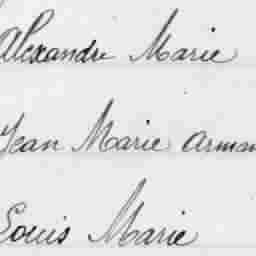 Alexandre Marie
Jean Marie Arman
Louis Marie